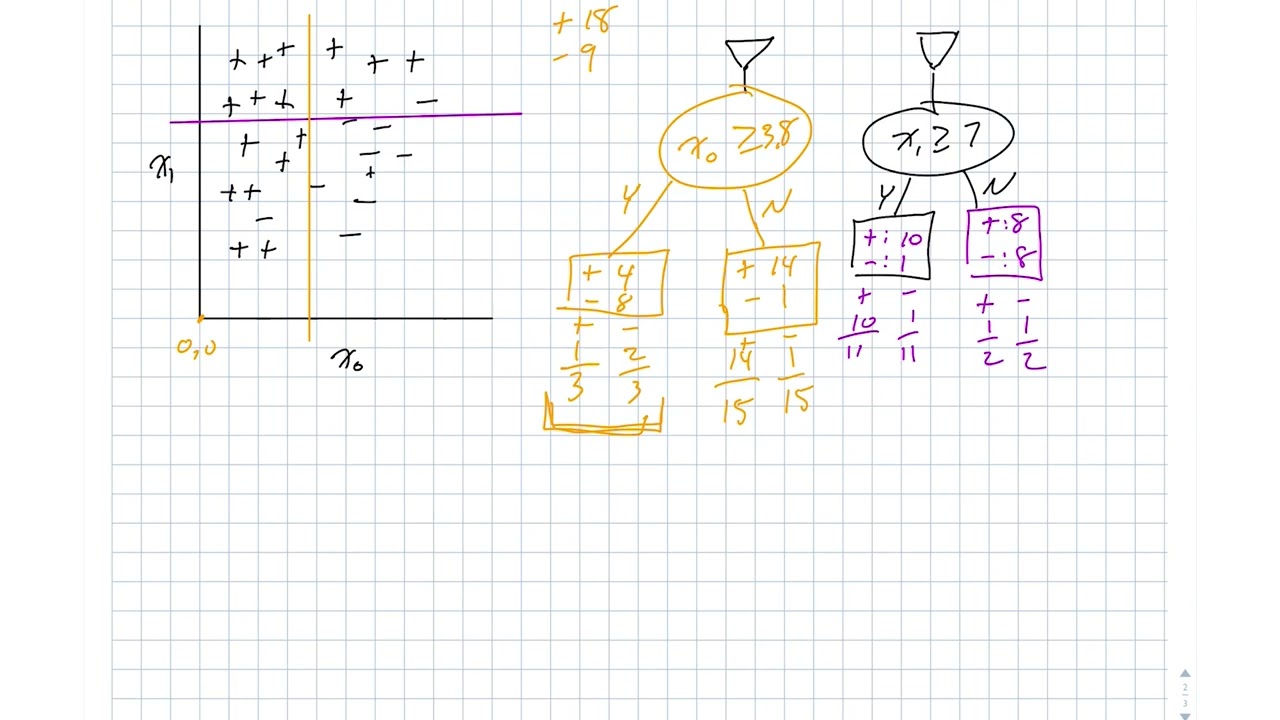 + 18
- 9
+ + + + + +
+ + + + -
- -
+ + + - -
+
+ + - -
-
+ + -
x₁
0,0
x₀
x₀ ≥ 3,8
Y N
+ 4
- 8
+ -
1/3 2/3
+ 14
- 1
+ -
14/15 1/15
x₁ ≥ 7
Y N
+: 10
-: 1
+ -
10/11 1/11
+: 8
-: 8
+ -
1/2 1/2
2
3